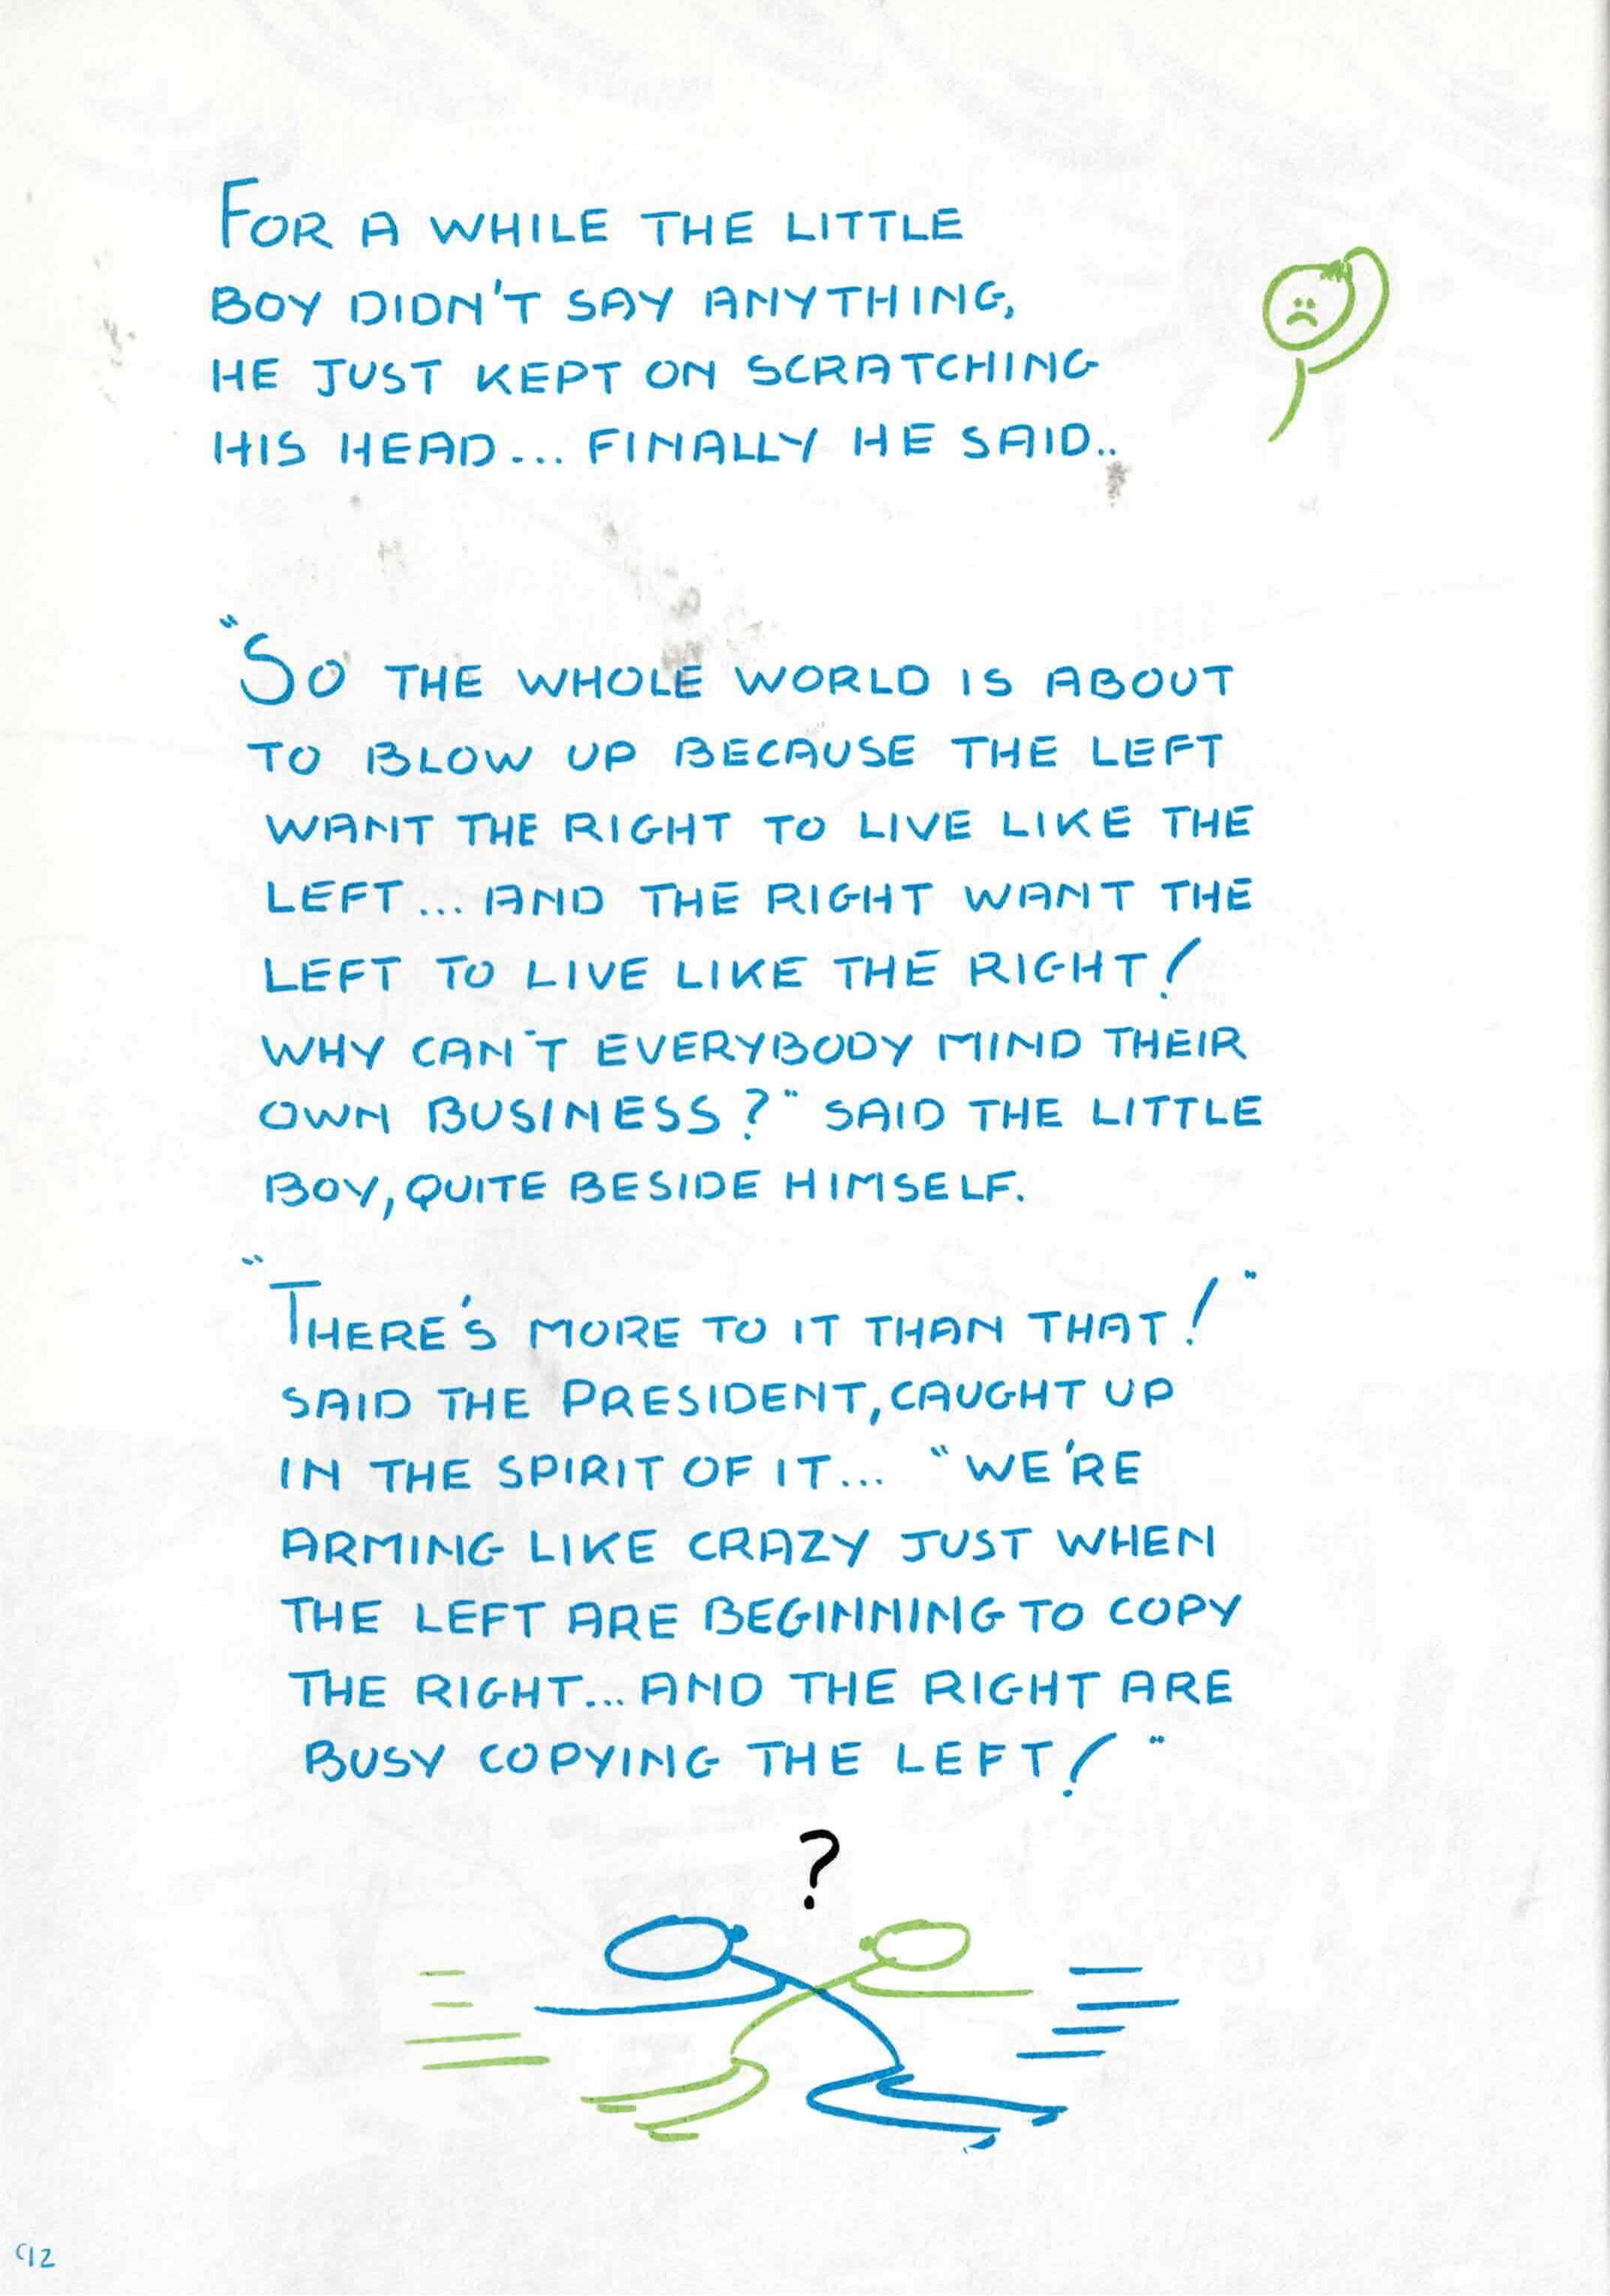 FOR A WHILE THE LITTLE
BOY DIDN'T SAY ANYTHING,
HE JUST KEPT ON SCRATCHING
HIS HEAD... FINALLY HE SAID..
"SO THE WHOLE WORLD IS ABOUT
TO BLOW UP BECAUSE THE LEFT
WANT THE RIGHT TO LIVE LIKE THE
LEFT... AND THE RIGHT WANT THE
LEFT TO LIVE LIKE THE RIGHT!
WHY CAN'T EVERYBODY MIND THEIR
OWN BUSINESS?" SAID THE LITTLE
BOY, QUITE BESIDE HIMSELF.
"THERE'S MORE TO IT THAN THAT!"
SAID THE PRESIDENT, CAUGHT UP
IN THE SPIRIT OF IT... "WE'RE
ARMING LIKE CRAZY JUST WHEN
THE LEFT ARE BEGINNING TO COPY
THE RIGHT... AND THE RIGHT ARE
BUSY COPYING THE LEFT!"
?